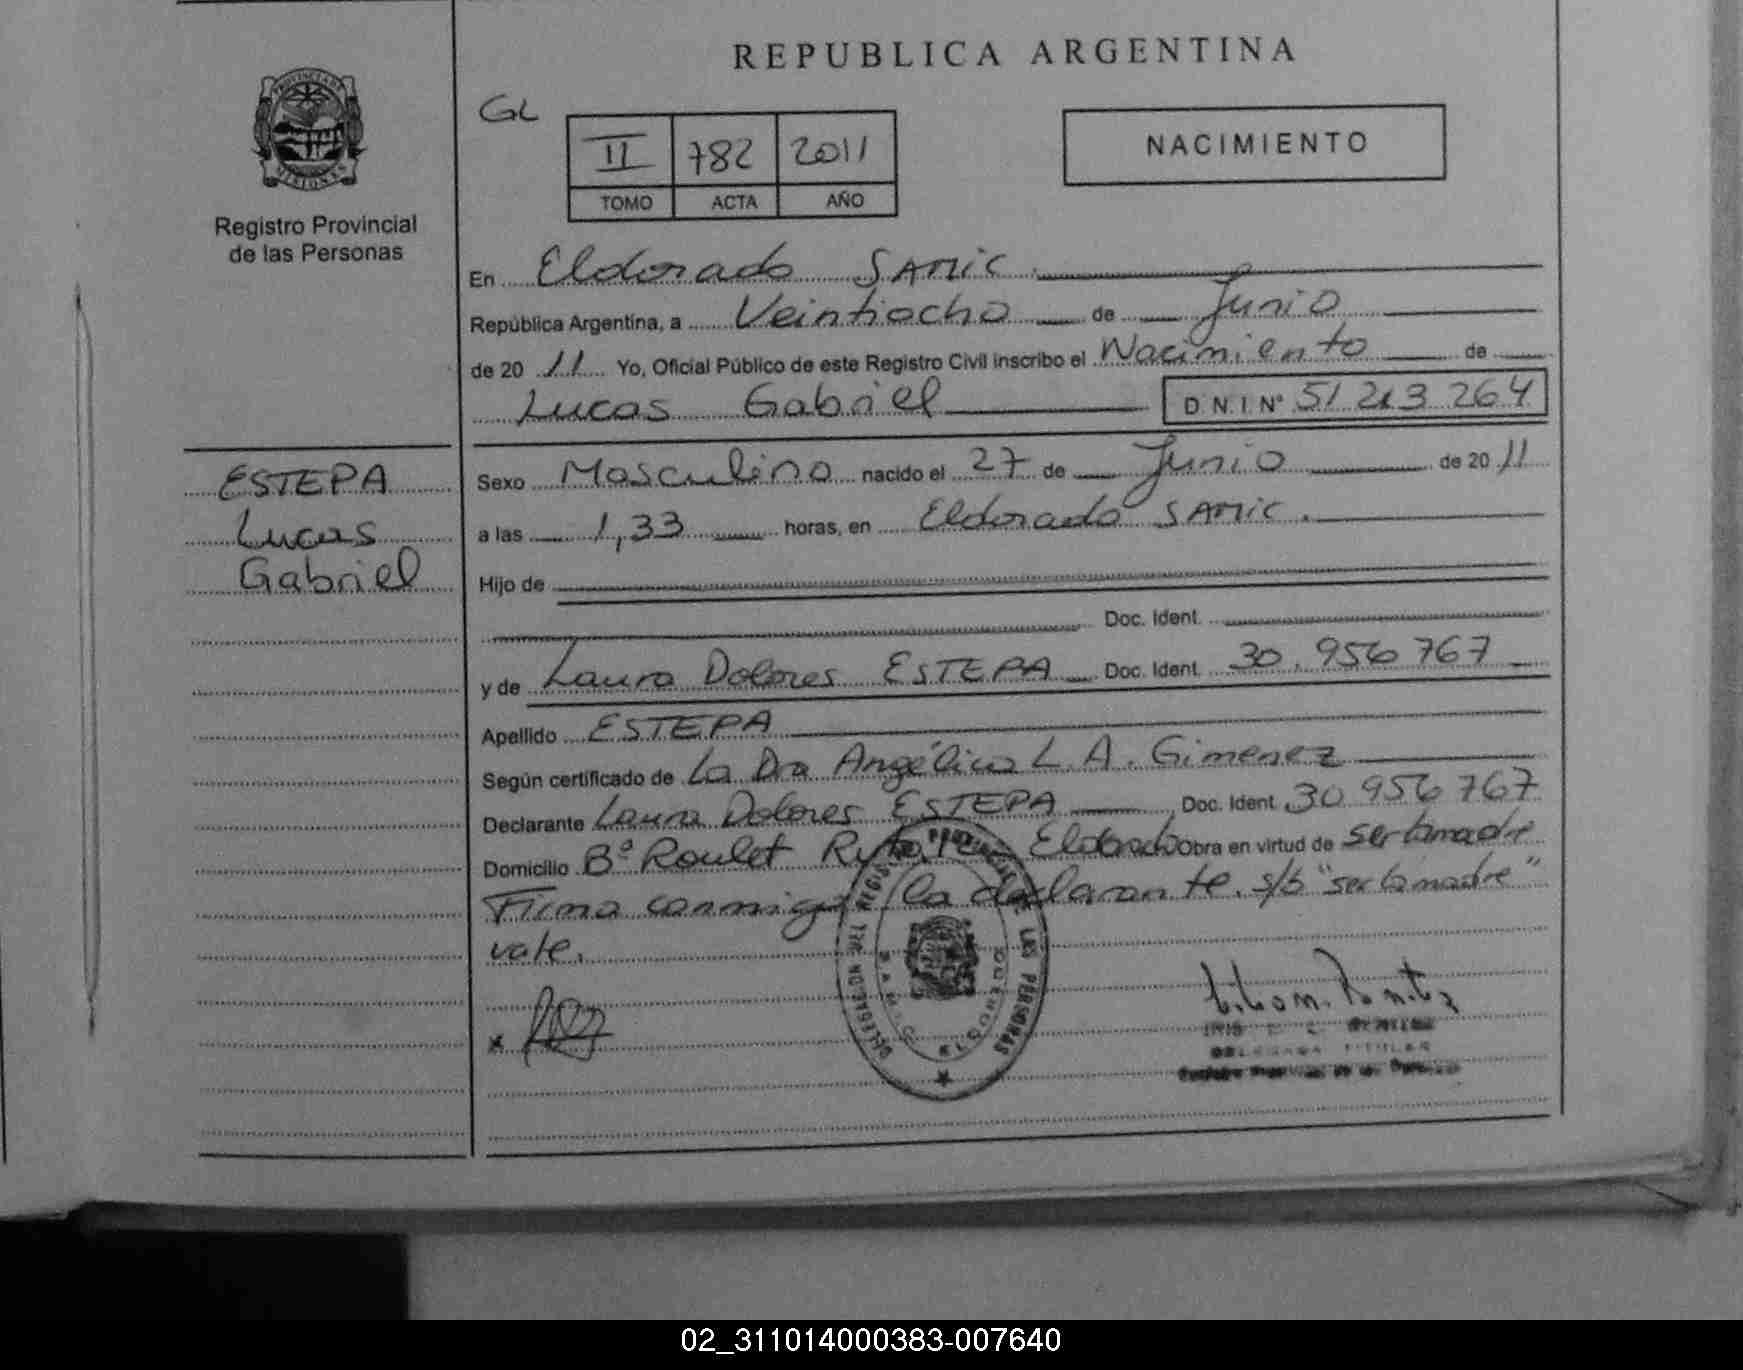 REPUBLICA ARGENTINA
PROVINCIA DE
MISIONES
Registro Provincial
de las Personas
GL
II 782 2011
TOMO ACTA AÑO
NACIMIENTO
En Eldorado SAMIC.
República Argentina, a Veintiocho de Junio
de 2011 Yo, Oficial Público de este Registro Civil inscribo el Nacimiento de
Lucas Gabriel D.N.I. Nº 51 213 264
ESTEPA
Lucas
Gabriel
Sexo Masculino nacido el 27 de Junio de 2011
a las 1,33 horas, en Eldorado SAMIC.
Hijo de
Doc. Ident.
y de Laura Dolores ESTEPA Doc. Ident. 30.956 767
Apellido ESTEPA
Según certificado de La Dra Angélica L. A. Gimenez
Declarante Laura Dolores ESTEPA Doc. Ident. 30 956 767
Domicilio Bº Roulet Eldorado Obra en virtud de ser la madre
Firma conmigo la declarante. s/b "ser la madre"
vale.
x
DELEGACION REGISTRO PROVINCIAL DE LAS PERSONAS
DELEGADA TITULAR
02_311014000383-007640